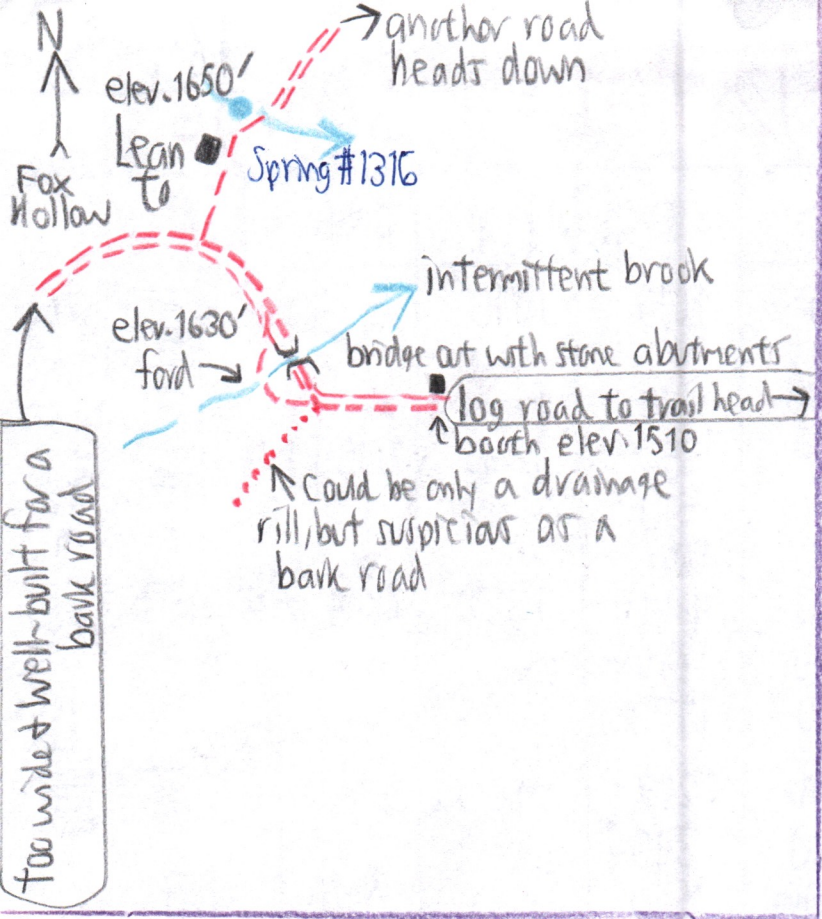 N
another road
heads down
elev. 1650'
Lean
to
Spring #1316
Fox
Hollow
intermittent brook
elev. 1630'
ford
bridge out with stone abutments
log road to trail head
booth elev. 1510
could be only a drainage
rill, but suspicias as a
bark road
too wide & well-built for a
bark road